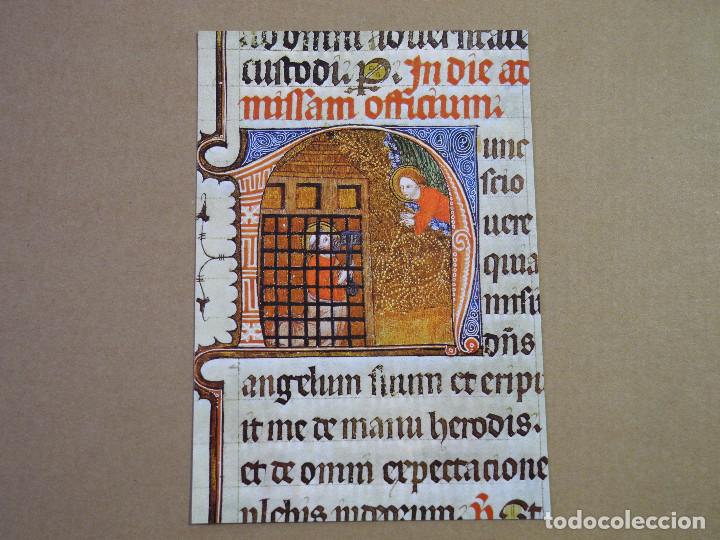 ab omni adversitate
custodi. P. In die ad
missam officium.
unc
scio
vere
quia
misit
dñs
angelum suum et eripu
it me de manu herodis.
et de omni expectacione
plebis iudeorum. ℣ Et
todocoleccion